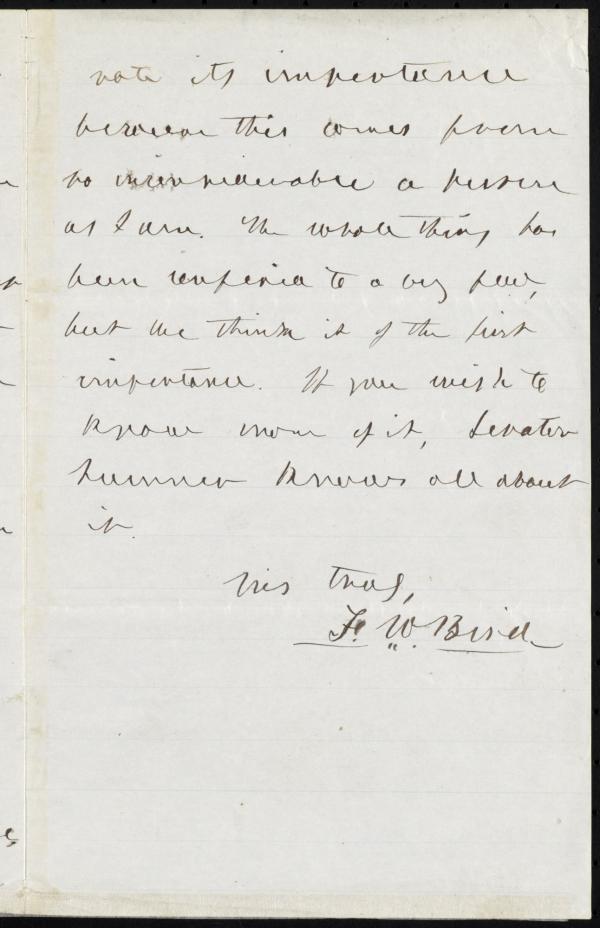 rate its importance
because this comes from
so inconsiderable a person
as I am. The whole thing has
been confined to a very few,
but we think it of the first
importance. If you wish to
know more of it, Senator
Sumner knows all about
it.
Yrs truly,
F. W. Bird